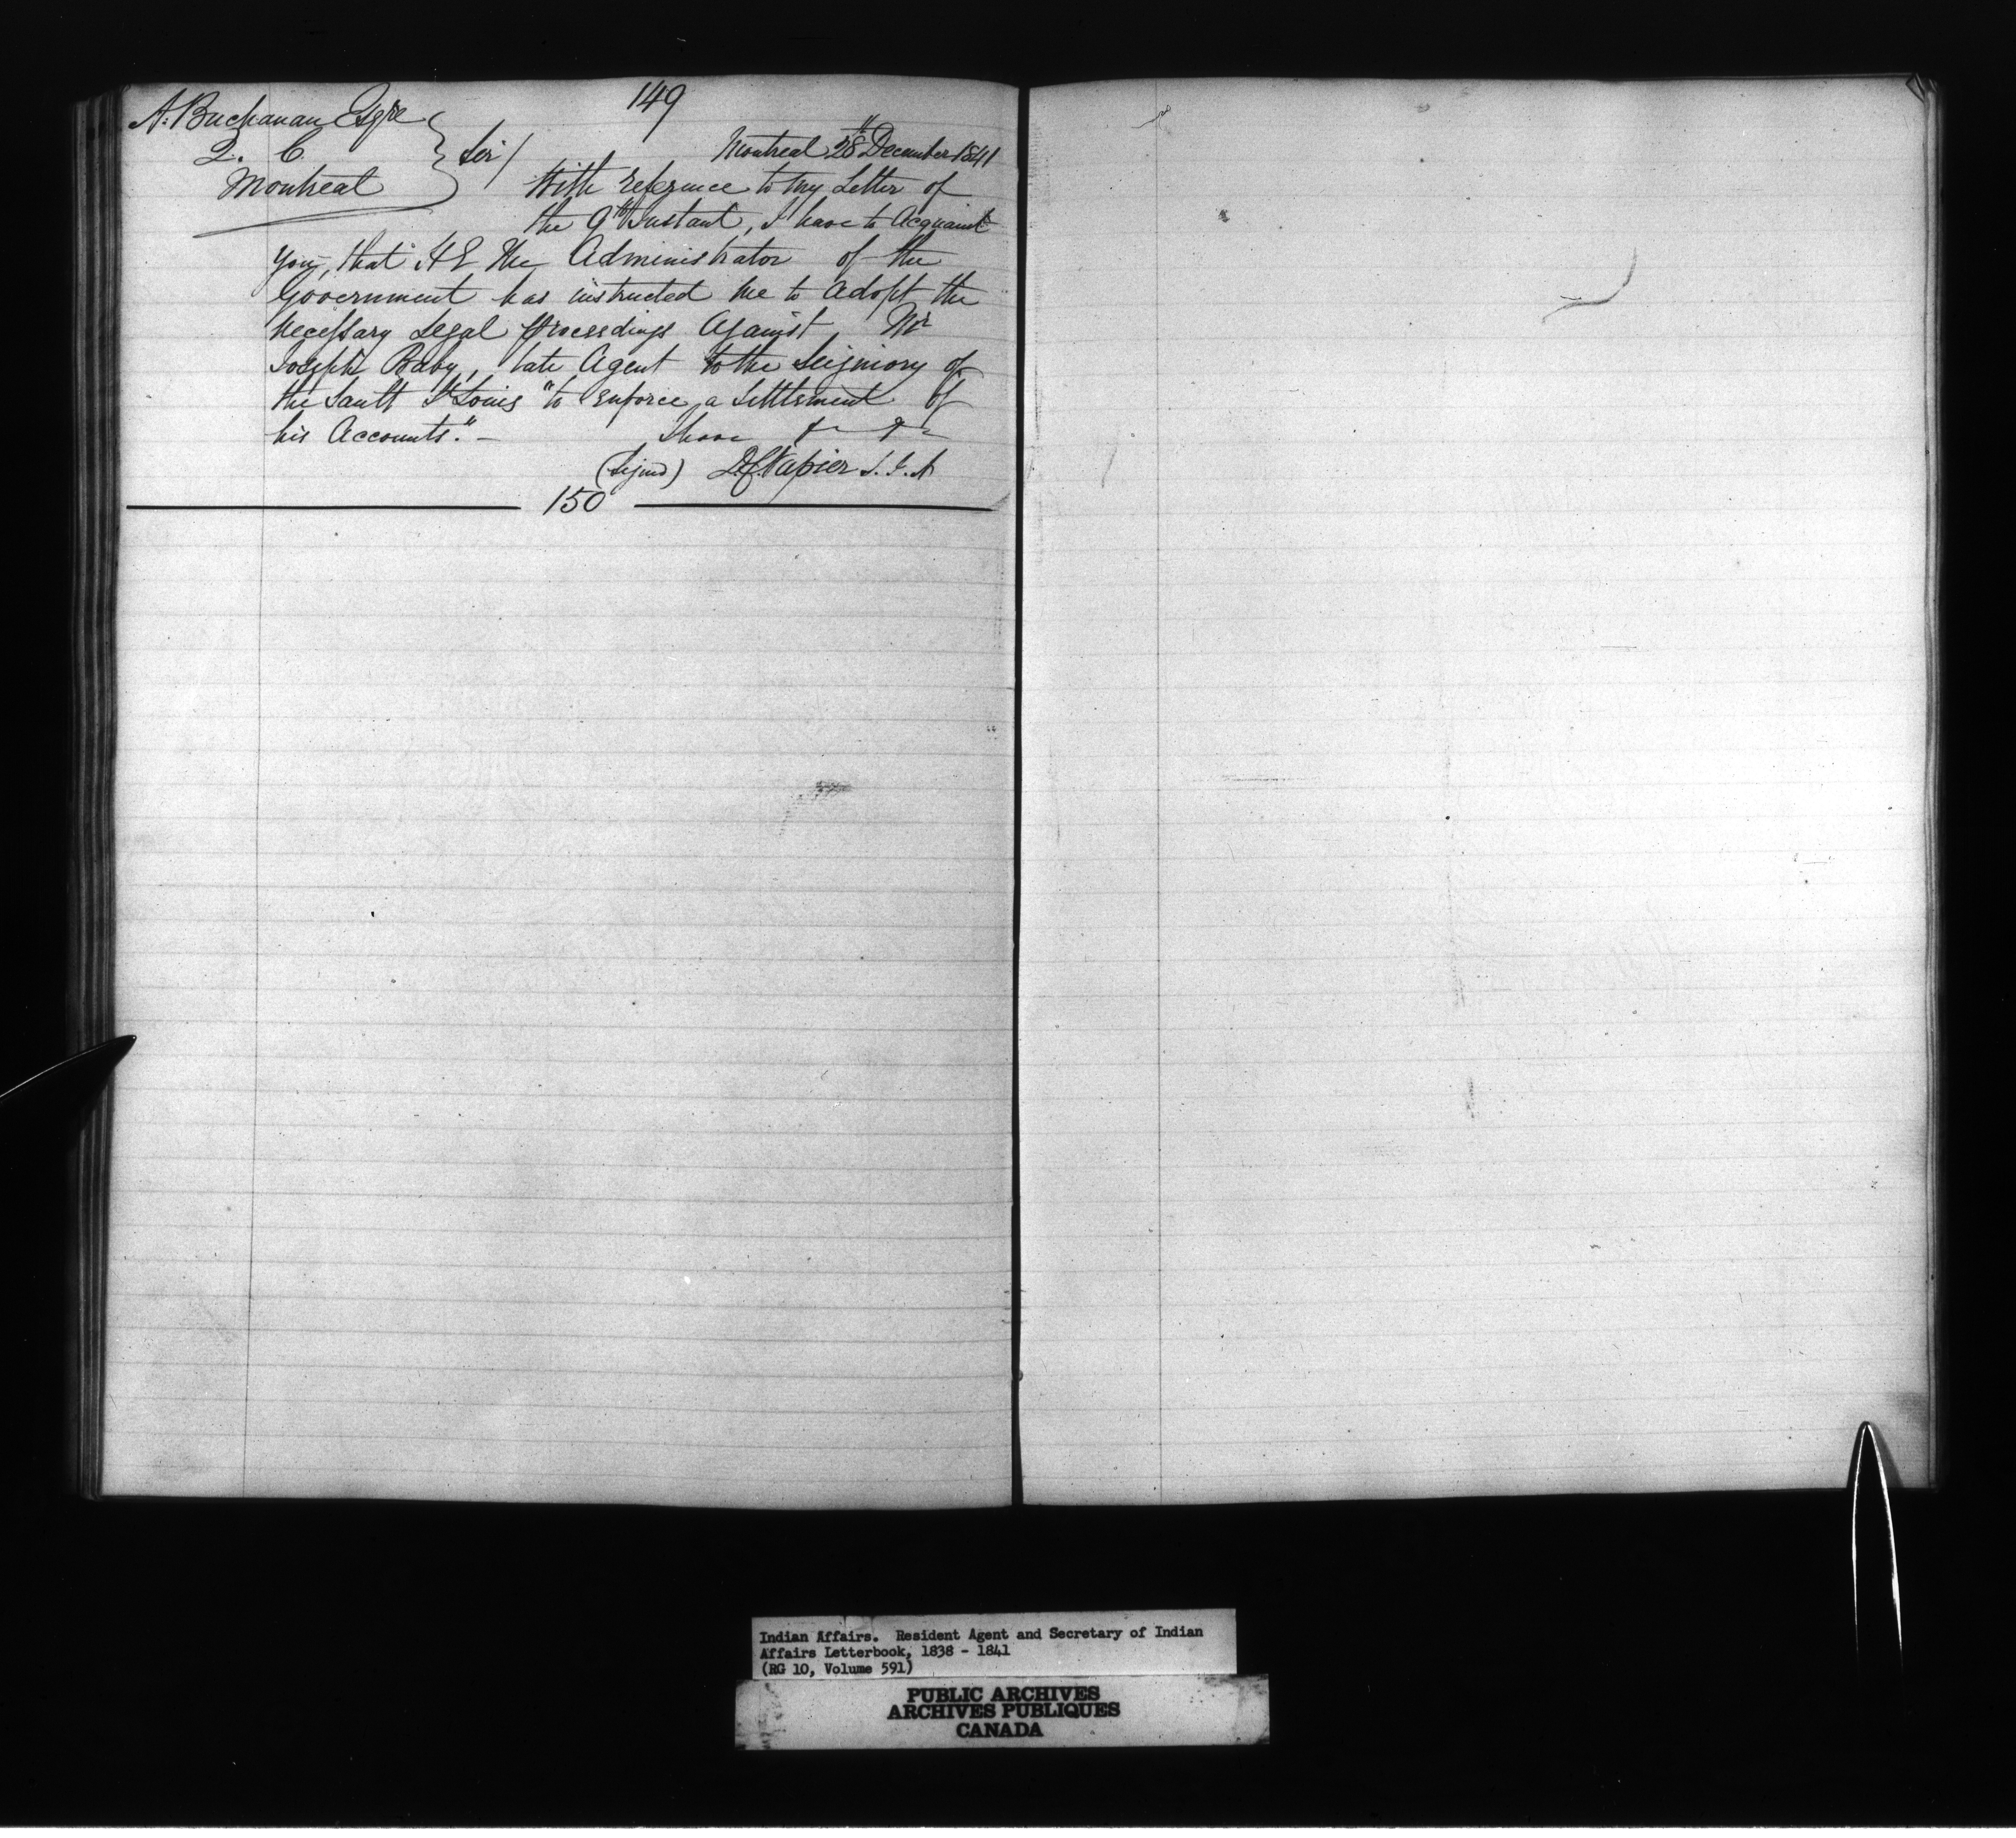 149
A. Buchanan Esqre
Q. C
Montreal
Sir/
Montreal 28th December 1841
With reference to my Letter of
the 9th Instant, I have to Acquaint
you, that H E the Administrator of the
Government has instructed me to adopt the
necessary Legal proceedings Against Mr
Joseph Baby, late Agent to the Seigniory of
the Sault St Louis "to enforce a Settlement of
his Accounts."-
I have &c &c
(Signed) D.C. Napier S. I. A
150
Indian Affairs. Resident Agent and Secretary of Indian
Affairs Letterbook, 1838 - 1841
(RG 10, Volume 591)
PUBLIC ARCHIVES
ARCHIVES PUBLIQUES
CANADA